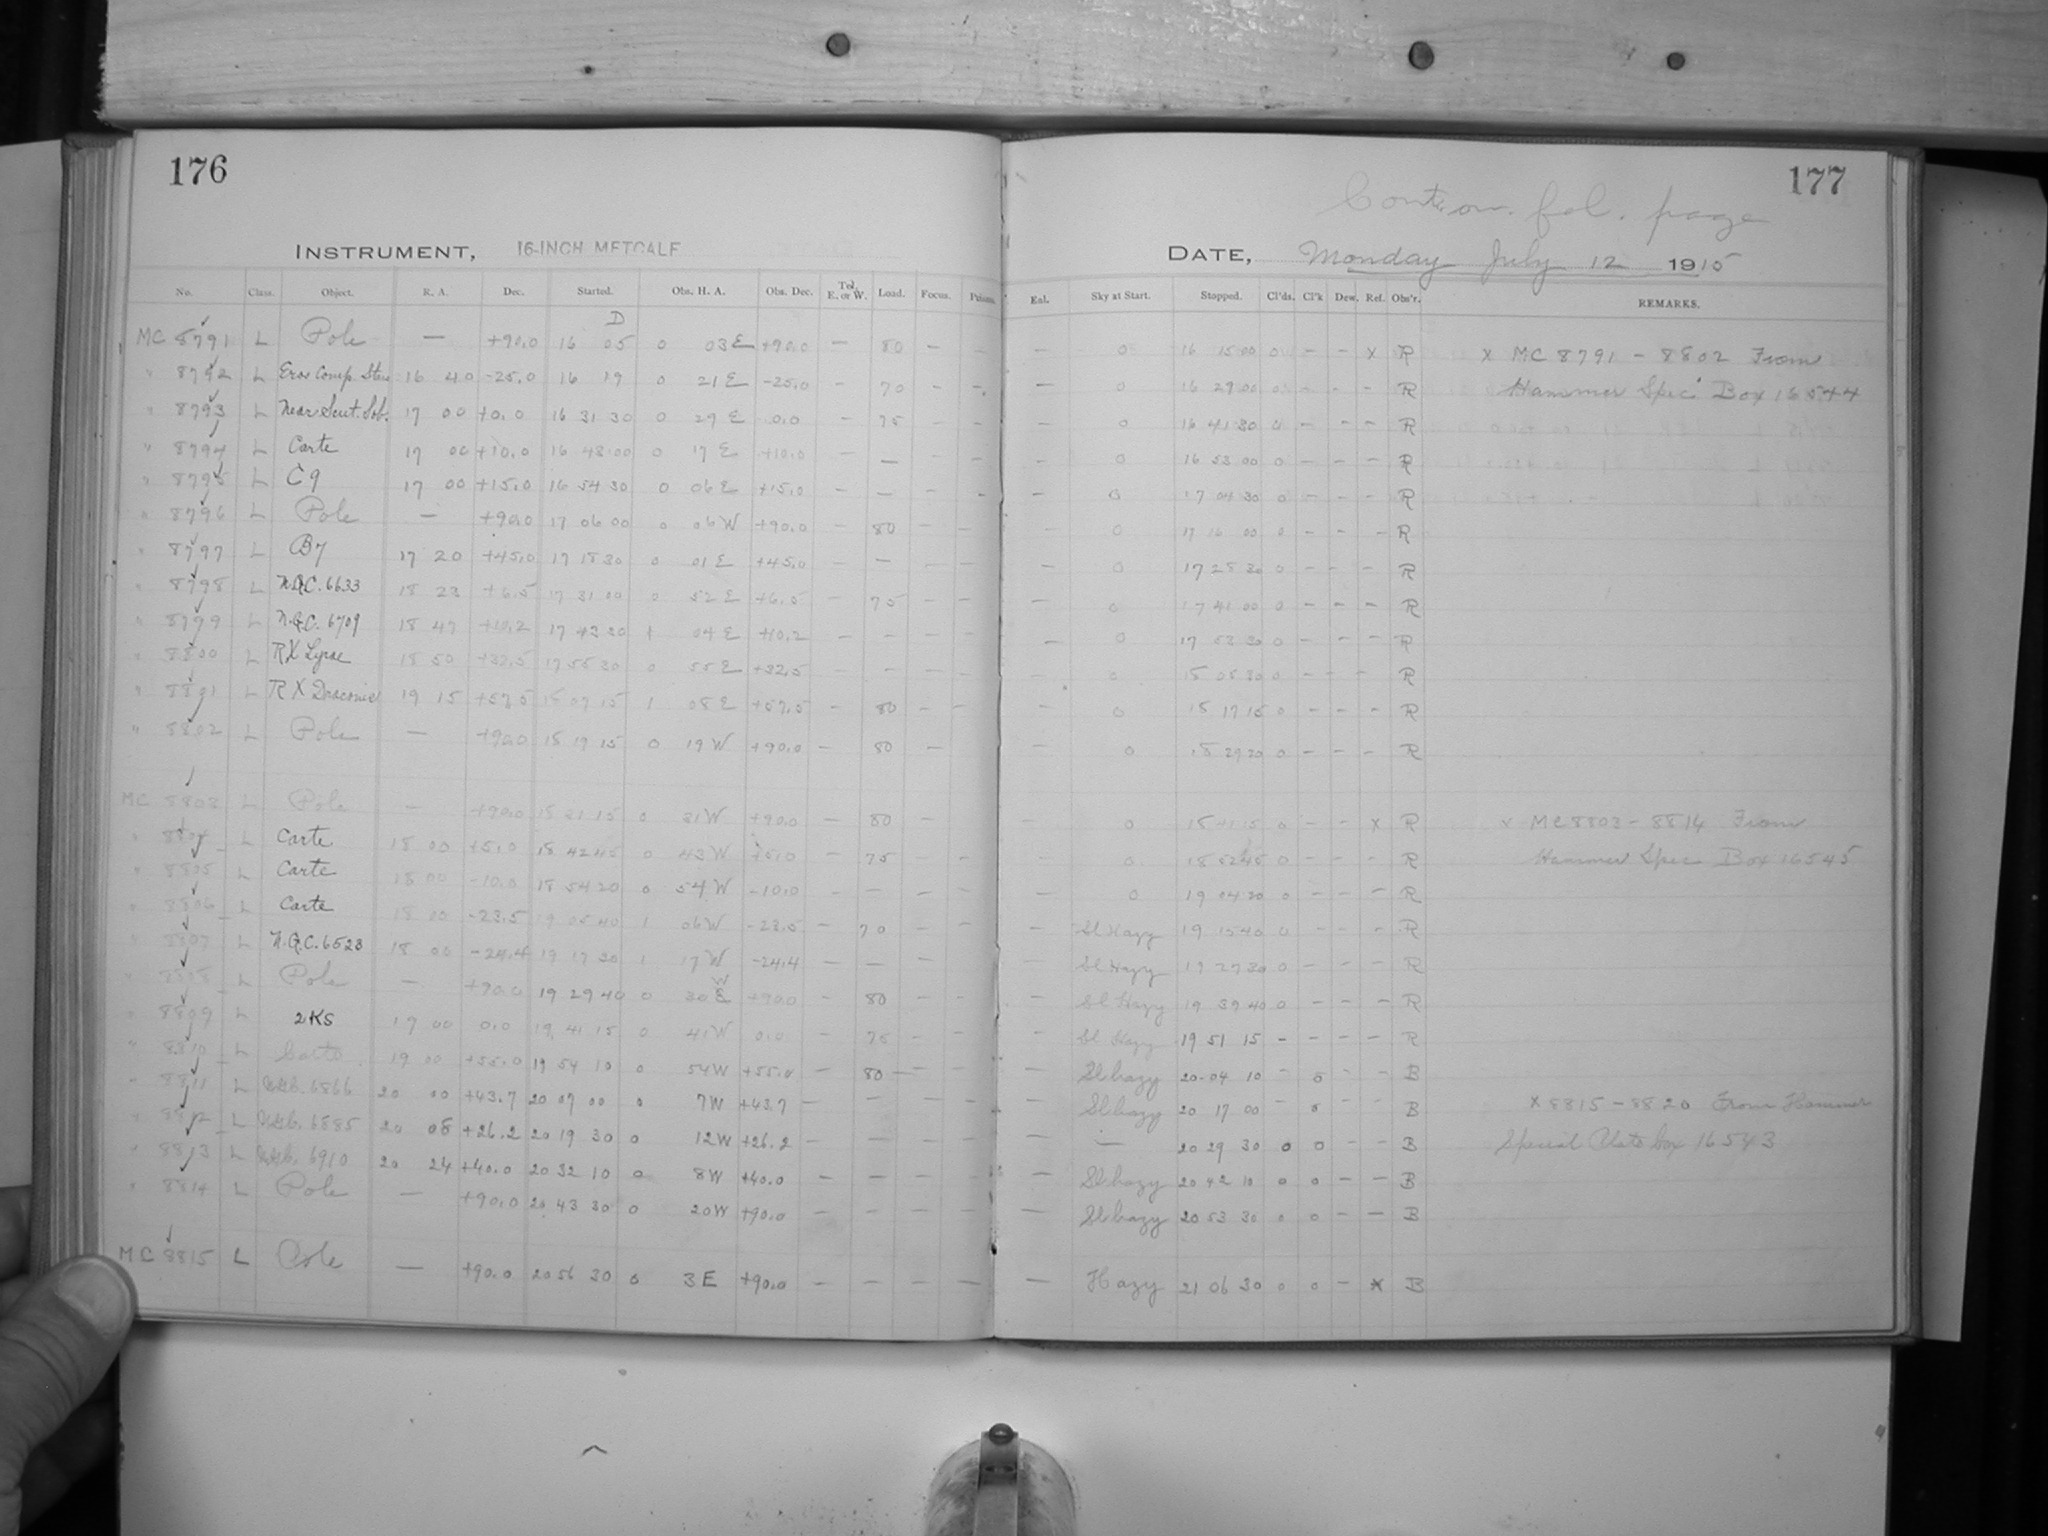 176
INSTRUMENT, 16-INCH METCALF
No. Class. Object. R. A. Dec. Started. Obs. H. A. Obs. Dec. Tel. E. or W. Load. Focus. Prisms.
D
MC 8791 L Pole — +90.0 16 05 0 03 E +90.0 — 80 — —
" 8792 L Eros Comp. Stars 16 40 -25.0 16 19 0 21 E -25.0 — 70 — —
" 8793 L Near Scut. Sob. 17 00 +0.0 16 31 30 0 29 E 0.0 — 75 — —
" 8794 L Carte 17 00 +10.0 16 43 00 0 17 E +10.0 — — — —
" 8795 L C9 17 00 +15.0 16 54 30 0 06 E +15.0 — — — —
" 8796 L Pole — +90.0 17 06 00 0 06 W +90.0 — 80 — —
" 8797 L B7 17 20 +45.0 17 18 30 0 01 E +45.0 — — — —
" 8798 L N.G.C. 6633 18 23 +6.5 17 31 00 0 52 E +6.5 — 75 — —
" 8799 L N.G.C. 6709 18 47 +10.2 17 43 30 1 04 E +10.2 — — — —
" 8800 L RX Lyrae 18 50 +32.5 17 55 30 0 55 E +32.5 — — — —
" 8801 L RX Draconis 19 15 +57.5 18 07 15 1 08 E +57.5 — 80 — —
" 8802 L Pole — +90.0 18 19 15 0 19 W +90.0 — 80 —
MC 8803 L Pole — +90.0 18 31 15 0 31 W +90.0 — 80 —
" 8804 L Carte 18 00 +5.0 18 42 45 0 43 W +5.0 — 75 — —
" 8805 L Carte 18 00 -10.0 18 54 20 0 54 W -10.0 — — — —
" 8806 L Carte 18 00 -23.5 19 05 40 1 06 W -23.5 — 70 — —
" 8807 L N.G.C. 6523 18 00 -24.4 19 17 30 1 17 W -24.4 — — — —
" 8808 L Pole — +90.0 19 29 40 0 30 W +90.0 — 80 — —
" 8809 L 2KS 19 00 0.0 19 41 15 0 41 W 0.0 — 75 — —
" 8810 L Carte 19 00 +55.0 19 54 10 0 54 W +55.0 — 80 — —
" 8811 L N.G.C. 6866 20 00 +43.7 20 07 00 0 7 W +43.7 — — — —
" 8812 L N.G.C. 6885 20 08 +26.2 20 19 30 0 12 W +26.2 — — — —
" 8813 L N.G.C. 6910 20 24 +40.0 20 32 10 0 8 W +40.0 — — — —
" 8814 L Pole — +90.0 20 43 30 0 20 W +90.0 — — — —
MC 8815 L Pole — +90.0 20 56 30 0 3 E +90.0 — — — —
177
Cont. on. fol. page
DATE, Monday July 12 1915
Eal. Sky at Start. Stopped. Cl'ds. Cl'k Dew. Ref. Obs'r. REMARKS.
— 0 16 15 00 0 — — x R x MC 8791 - 8802 From
— 0 16 29 00 0 — — — R Hammer Spec. Box 16544
0 16 41 30 0 — — — R
— 0 16 53 00 0 — — — R
— 0 17 04 30 0 — — — R
— 0 17 16 00 0 — — R
— 0 17 28 30 0 — — — R
0 17 41 00 0 — — — R
— 0 17 53 30 0 — — — R
0 18 05 30 0 — — — R
— 0 18 17 15 0 — — — R
— 0 18 29 20 0 — — — R
— 0 18 41 15 0 — — x R x MC 8803 - 8814 From
— 0 18 52 45 0 — — — R Hammer Spec. Box 16545
— 0 19 04 20 0 — — — R
— Sl Hazy 19 15 40 0 — — — R
— Sl Hazy 19 27 30 0 — — — R
— Sl Hazy 19 39 40 0 — — — R
— Sl Hazy 19 51 15 — — — — R
— Sl hazy 20 04 10 — 0 — — B
— Sl hazy 20 17 00 — 0 — — B x 8815 - 8820 From Hammer
— — 20 29 30 0 0 — — B Special Plate box 16543
— Sl hazy 20 42 10 0 0 — — B
— Sl hazy 20 53 30 0 0 — — B
— Hazy 21 06 30 0 0 — x B